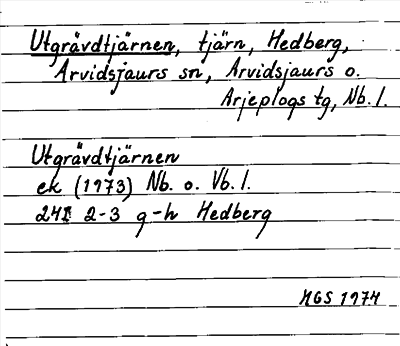 Utgrävdtjärnen, tjärn, Hedberg,
Arvidsjaurs sn, Arvidsjaurs o.
Arjeplogs tg, Nb. l.
Utgrävdtjärnen
ek (1973) Nb. o. Vb. l.
24I 2-3 g-h Hedberg
MGS 1974